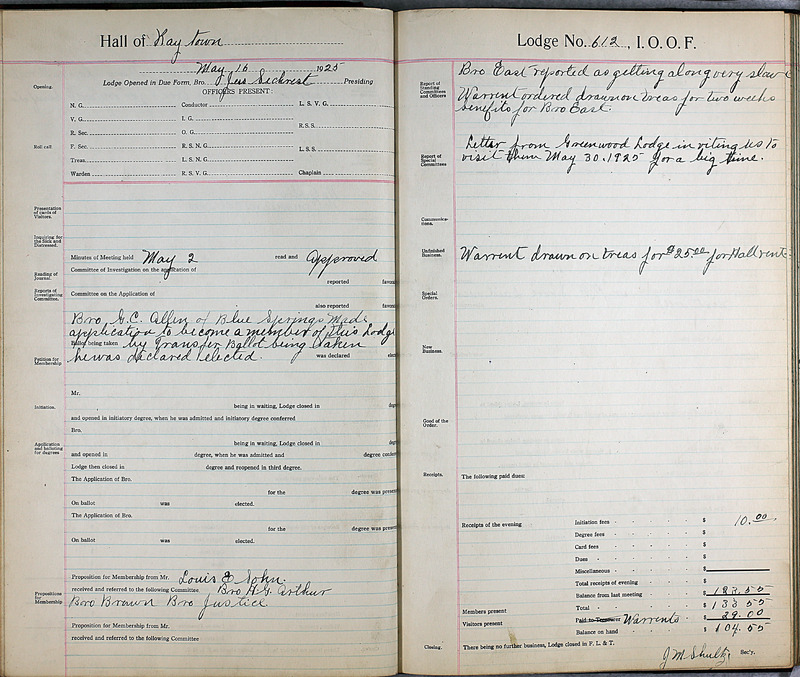 Hall of Hay town
May 16 1925
Opening.
Lodge Opened in Due Form, Bro. Jas Sechrest Presiding
OFFICERS PRESENT:
N. G. Conductor L. S. V. G.
V. G. I. G.
R. S. S.
R. Sec. O. G.
Roll call
F. Sec. R. S. N. G.
L. S. S.
Treas. L. S. N. G.
Warden R. S. V. G. Chaplain
Presentation of cards of Visitors.
Inquiring for the Sick and Distressed.
Minutes of Meeting held May 2 read and approved
Reading of Journal.
Committee of Investigation on the application of
reported favor
Reports of Investigating Committee.
Committee on the Application of
also reported favor
Bro G. C. Allen of Blue Springs Made
application to become a member of this Lodge
Ballot being taken by Transfer Ballot being taken
Petition for Membership
he was declared elected. was declared elec
Mr.
Initiation.
being in waiting, Lodge closed in deg
and opened in initiatory degree, when he was admitted and initiatory degree conferred
Bro.
Application and balloting for degrees
being in waiting, Lodge closed in deg
and opened in degree, when he was admitted and degree confer
Lodge then closed in degree and reopened in third degree.
The Application of Bro.
for the degree was presen
On ballot was elected.
The Application of Bro.
for the degree was presen
On ballot was elected.
Proposition for Membership from Mr. Louis E John.
Propositions for Membership
received and referred to the following Committee, Bro H. G. Arthur
Bro Brown Bro Justice
Proposition for Membership from Mr.
received and referred to the following Committee
Lodge No. 612, I. O. O. F.
Bro East reported as getting along very slow
Report of Standing Committees and Officers
Warrent ordered drawn on treas for two weeks
benefits for Bro East.
Letter from Greenwood Lodge in viting us to
Report of Special Committees
visit them May 30, 1925 for a big time.
Communications.
Unfinished Business.
Warrent drawn on treas for $25.00 for Hall rent
Special Orders.
New Business.
Good of the Order.
Receipts.
The following paid dues:
Receipts of the evening
Initiation fees $ 10.00
Degree fees $
Card fees $
Dues $
Miscellaneous $
Total receipts of evening $
Balance from last meeting $ 123.55
Members present
Total $ 133 55
Visitors present
Paid to Treasurer Warrents $ 29.00
Balance on hand $ 104.55
Closing.
There being no further business, Lodge closed in F. L. & T.
J M Shultz Sec'y.